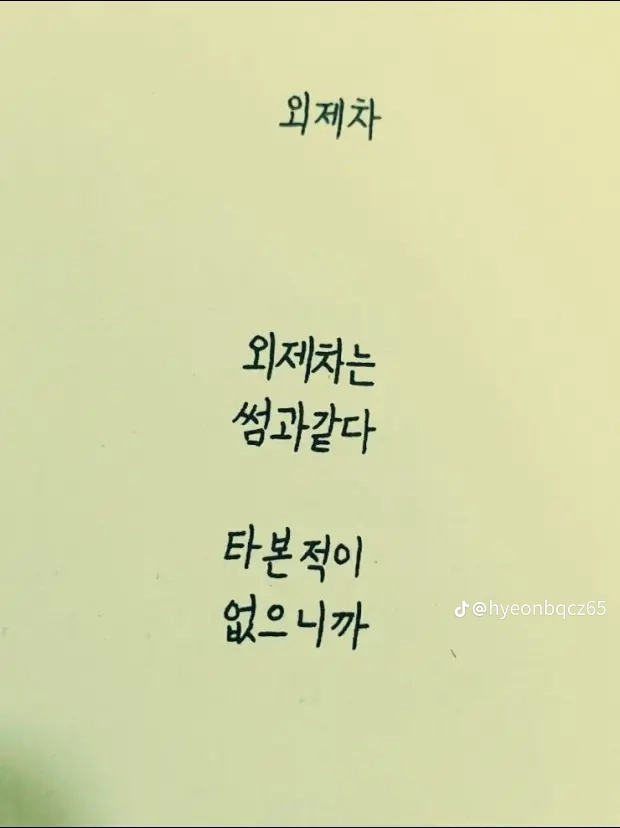 외제차
외제차는
썸과같다
타본적이
없으니까
@hyeonbqcz65